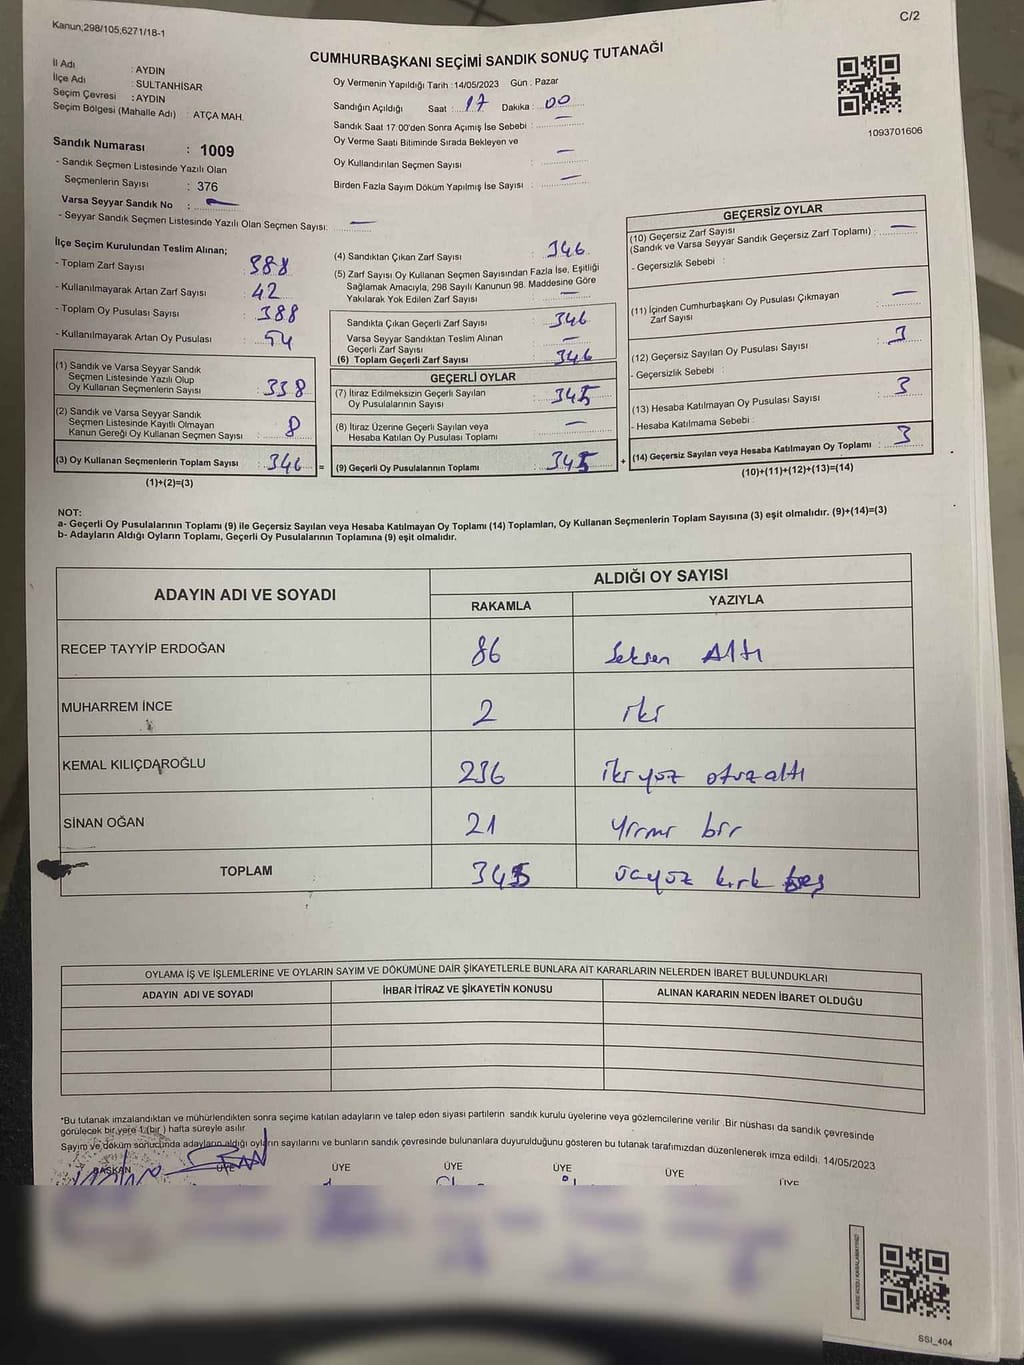 Kanun;298/105,6271/18-1
C/2
CUMHURBAŞKANI SEÇİMİ SANDIK SONUÇ TUTANAĞI
İl Adı : AYDIN
İlçe Adı : SULTANHİSAR
Seçim Çevresi : AYDIN
Seçim Bölgesi (Mahalle Adı) : ATÇA MAH.
Sandık Numarası : 1009
- Sandık Seçmen Listesinde Yazılı Olan
Seçmenlerin Sayısı : 376
Varsa Seyyar Sandık No : —
- Seyyar Sandık Seçmen Listesinde Yazılı Olan Seçmen Sayısı: —
Oy Vermenin Yapıldığı Tarih : 14/05/2023 Gün : Pazar
Sandığın Açıldığı Saat : 17 Dakika : 00
Sandık Saat 17:00'den Sonra Açımış İse Sebebi : —
Oy Verme Saati Bitiminde Sırada Bekleyen ve
Oy Kullandırılan Seçmen Sayısı : —
Birden Fazla Sayım Döküm Yapılmış İse Sayısı : —
1093701606
İlçe Seçim Kurulundan Teslim Alınan;
- Toplam Zarf Sayısı 388
- Kullanılmayarak Artan Zarf Sayısı 42
- Toplam Oy Pusulası Sayısı : 388
- Kullanılmayarak Artan Oy Pusulası : 54
(1) Sandık ve Varsa Seyyar Sandık
Seçmen Listesinde Yazılı Olup
Oy Kullanan Seçmenlerin Sayısı : 338
(2) Sandık ve Varsa Seyyar Sandık
Seçmen Listesinde Kayıtlı Olmayan
Kanun Gereği Oy Kullanan Seçmen Sayısı : 8
(3) Oy Kullanan Seçmenlerin Toplam Sayısı : 346 =
(1)+(2)=(3)
(4) Sandıktan Çıkan Zarf Sayısı : 346
(5) Zarf Sayısı Oy Kullanan Seçmen Sayısından Fazla İse, Eşitliği
Sağlamak Amacıyla, 298 Sayılı Kanunun 98. Maddesine Göre
Yakılarak Yok Edilen Zarf Sayısı : —
Sandıkta Çıkan Geçerli Zarf Sayısı : 346
Varsa Seyyar Sandıktan Teslim Alınan
Geçerli Zarf Sayısı : —
(6) Toplam Geçerli Zarf Sayısı : 346
GEÇERLİ OYLAR
(7) İtiraz Edilmeksizin Geçerli Sayılan
Oy Pusulalarının Sayısı : 345
(8) İtiraz Üzerine Geçerli Sayılan veya
Hesaba Katılan Oy Pusulası Toplamı : —
(9) Geçerli Oy Pusulalarının Toplamı : 345 +
GEÇERSİZ OYLAR
(10) Geçersiz Zarf Sayısı
(Sandık ve Varsa Seyyar Sandık Geçersiz Zarf Toplamı) : —
- Geçersizlik Sebebi :
(11) İçinden Cumhurbaşkanı Oy Pusulası Çıkmayan
Zarf Sayısı : —
(12) Geçersiz Sayılan Oy Pusulası Sayısı : 3
- Geçersizlik Sebebi :
(13) Hesaba Katılmayan Oy Pusulası Sayısı : 3
- Hesaba Katılmama Sebebi :
(14) Geçersiz Sayılan veya Hesaba Katılmayan Oy Toplamı : 3
(10)+(11)+(12)+(13)=(14)
NOT:
a- Geçerli Oy Pusulalarının Toplamı (9) ile Geçersiz Sayılan veya Hesaba Katılmayan Oy Toplamı (14) Toplamları, Oy Kullanan Seçmenlerin Toplam Sayısına (3) eşit olmalıdır. (9)+(14)=(3)
b- Adayların Aldığı Oyların Toplamı, Geçerli Oy Pusulalarının Toplamına (9) eşit olmalıdır.
ADAYIN ADI VE SOYADI
ALDIĞI OY SAYISI
RAKAMLA YAZIYLA
RECEP TAYYİP ERDOĞAN 86 Seksen Altı
MUHARREM İNCE 2 iki
KEMAL KILIÇDAROĞLU 236 ikiyüz otuzaltı
SİNAN OĞAN 21 Yirmi bir
TOPLAM 345 üçyüz kırk beş
OYLAMA İŞ VE İŞLEMLERİNE VE OYLARIN SAYIM VE DÖKÜMÜNE DAİR ŞİKAYETLERLE BUNLARA AİT KARARLARIN NELERDEN İBARET BULUNDUKLARI
ADAYIN ADI VE SOYADI İHBAR İTİRAZ VE ŞİKAYETİN KONUSU ALINAN KARARIN NEDEN İBARET OLDUĞU
*Bu tutanak imzalandıktan ve mühürlendikten sonra seçime katılan adayların ve talep eden siyasi partilerin sandık kurulu üyelerine veya gözlemcilerine verilir .Bir nüshası da sandık çevresinde
görülecek bir yere 1 (bir ) hafta süreyle asılır.
Sayım ve döküm sonucunda adayların aldığı oyların sayılarını ve bunların sandık çevresinde bulunanlara duyurulduğunu gösteren bu tutanak tarafımızdan düzenlenerek imza edildi. 14/05/2023
BAŞKAN ÜYE ÜYE ÜYE ÜYE ÜYE ÜYE
SSI_404